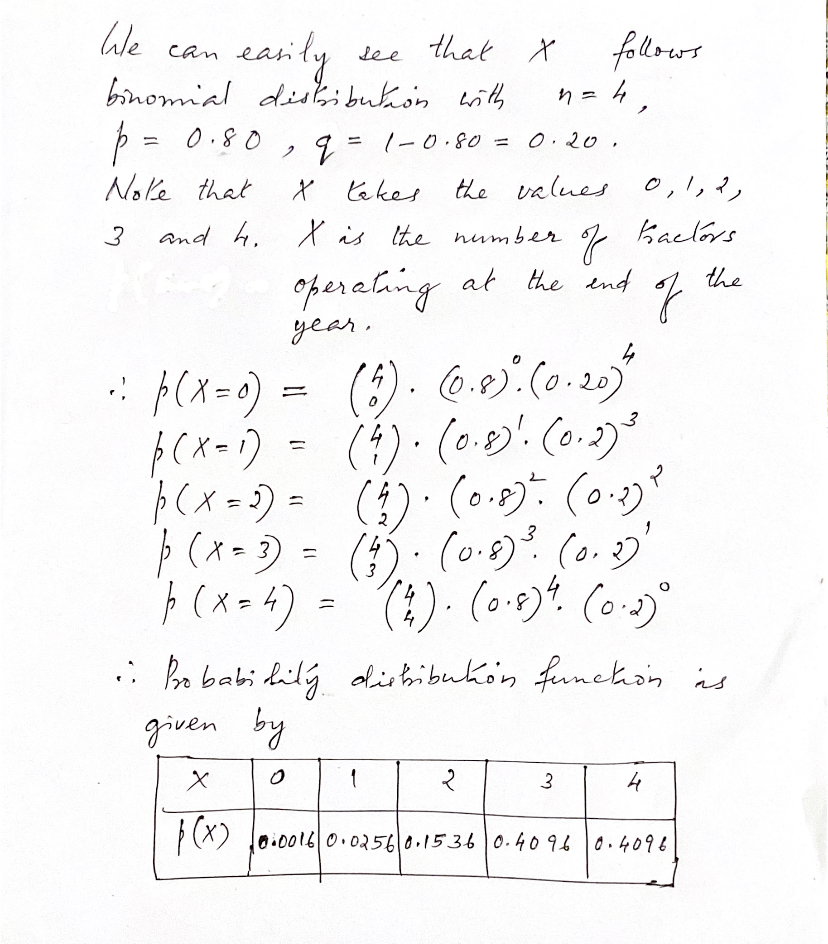 We can easily see that X follows
binomial distribution with n = 4,
p = 0.80, q = 1-0.80 = 0.20.
Note that X takes the values 0, 1, 2,
3 and 4. X is the number of tractors
operating at the end of the
year.
∴ p(X=0) = (4 0) · (0.8)⁰ · (0.20)⁴
p(X=1) = (4 1) · (0.8)¹ · (0.2)³
p(X=2) = (4 2) · (0.8)² · (0.2)²
p(X=3) = (4 3) · (0.8)³ · (0.2)¹
p(X=4) = (4 4) · (0.8)⁴ · (0.2)⁰
∴ Probability distribution function is
given by
X 0 1 2 3 4
p(X) 0.0016 0.0256 0.1536 0.4096 0.4096